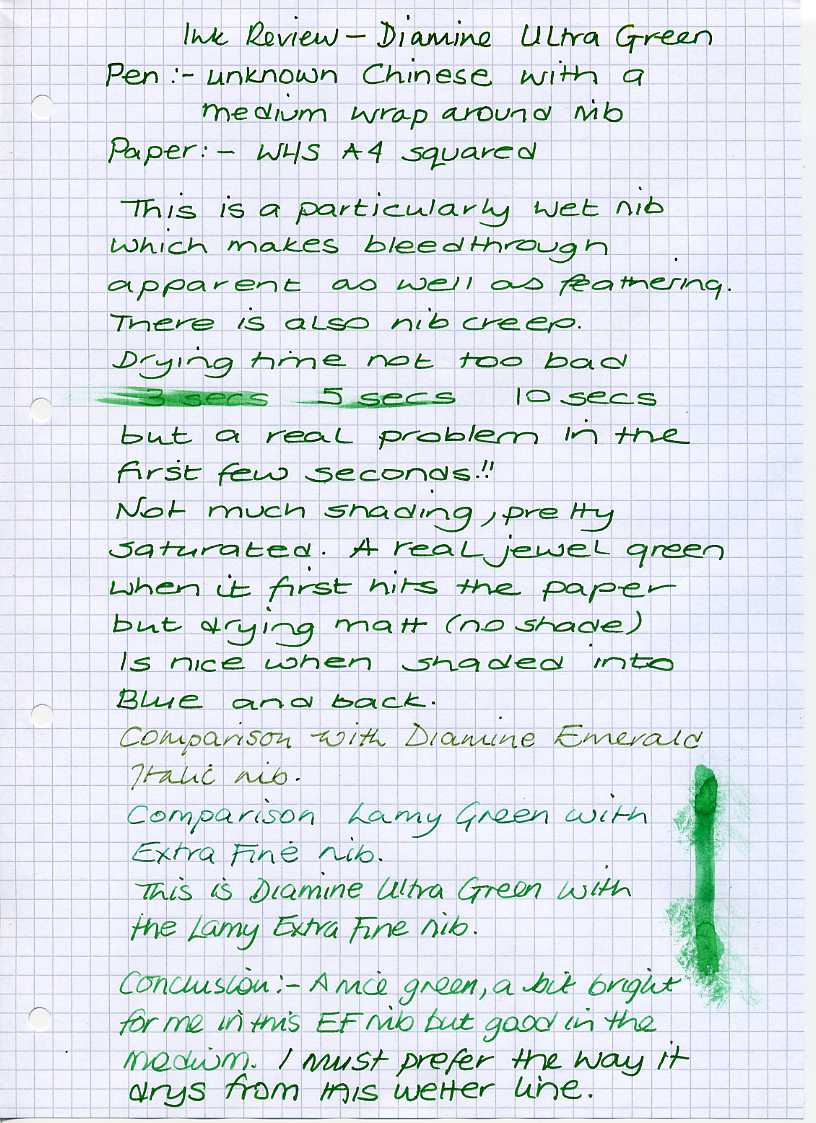 Ink Review – Diamine Ultra Green
Pen :- unknown Chinese with a
medium wrap around nib
Paper :- WHS A4 squared
This is a particularly wet nib
which makes bleedthrough
apparent as well as feathering.
There is also nib creep.
Drying time not too bad
3 secs 5 secs 10 secs
but a real problem in the
first few seconds!!
Not much shading, pretty
saturated. A real jewel green
when it first hits the paper
but drying matt (no shade)
Is nice when shaded into
Blue and back.
Comparison with Diamine Emerald
Italic nib.
Comparison Lamy Green with
Extra Fine nib.
This is Diamine Ultra Green with
the Lamy Extra Fine nib.
Conclusion :- A nice green, a bit bright
for me in this EF nib but good in the
medium. I must prefer the way it
drys from this wetter line.